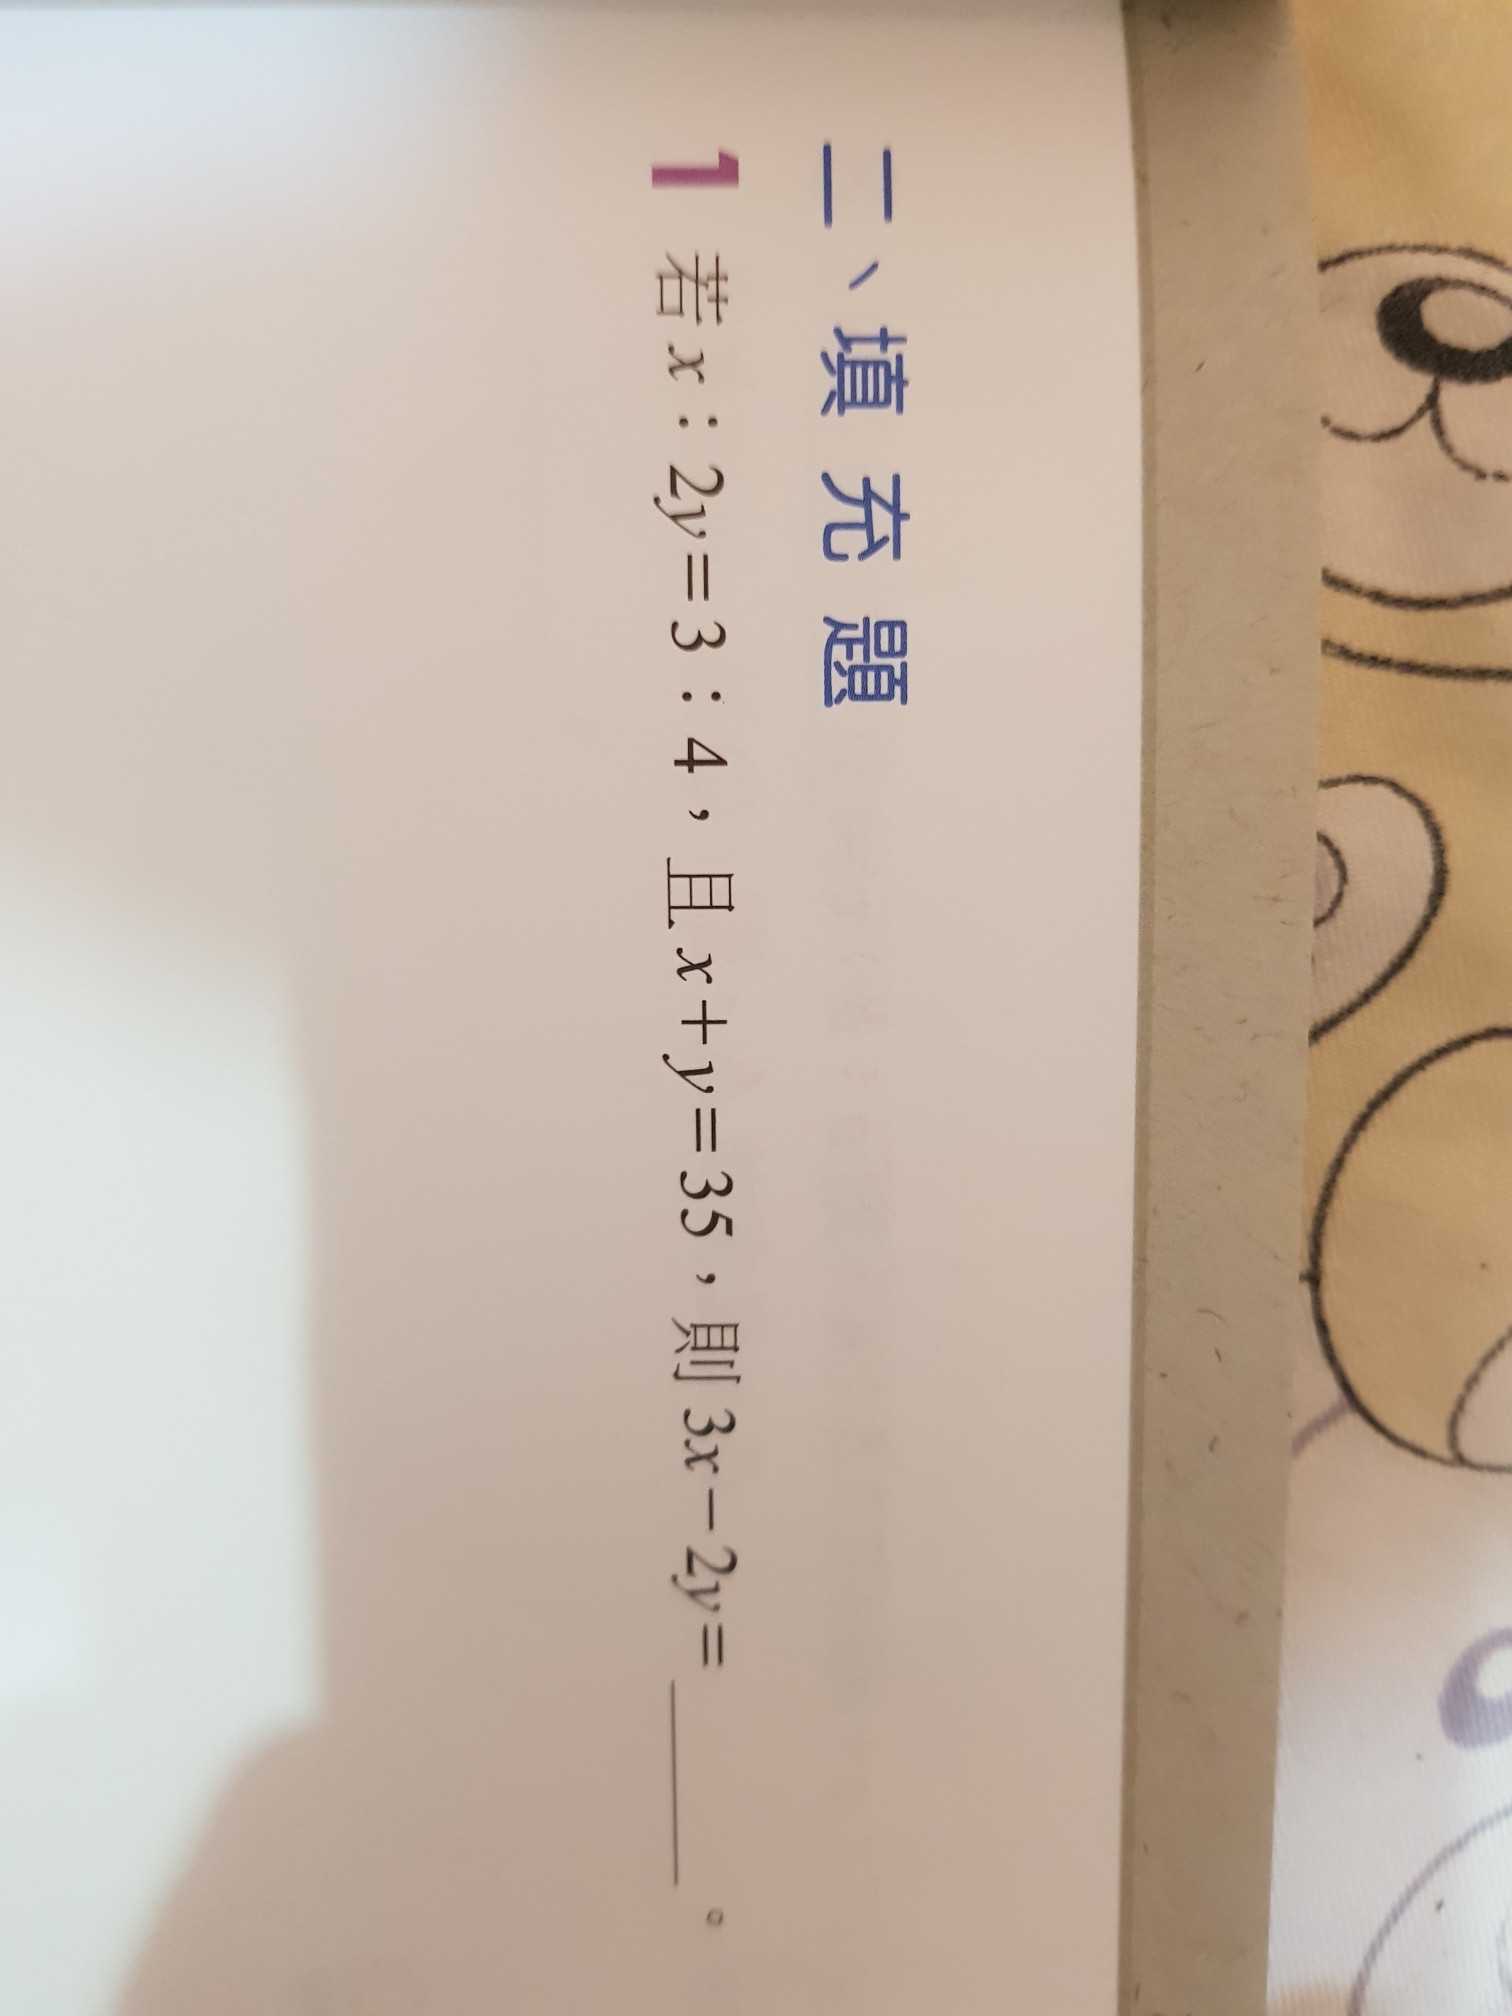 二、填充題
1 若x：2y=3：4，且x+y=35，則3x-2y=______。